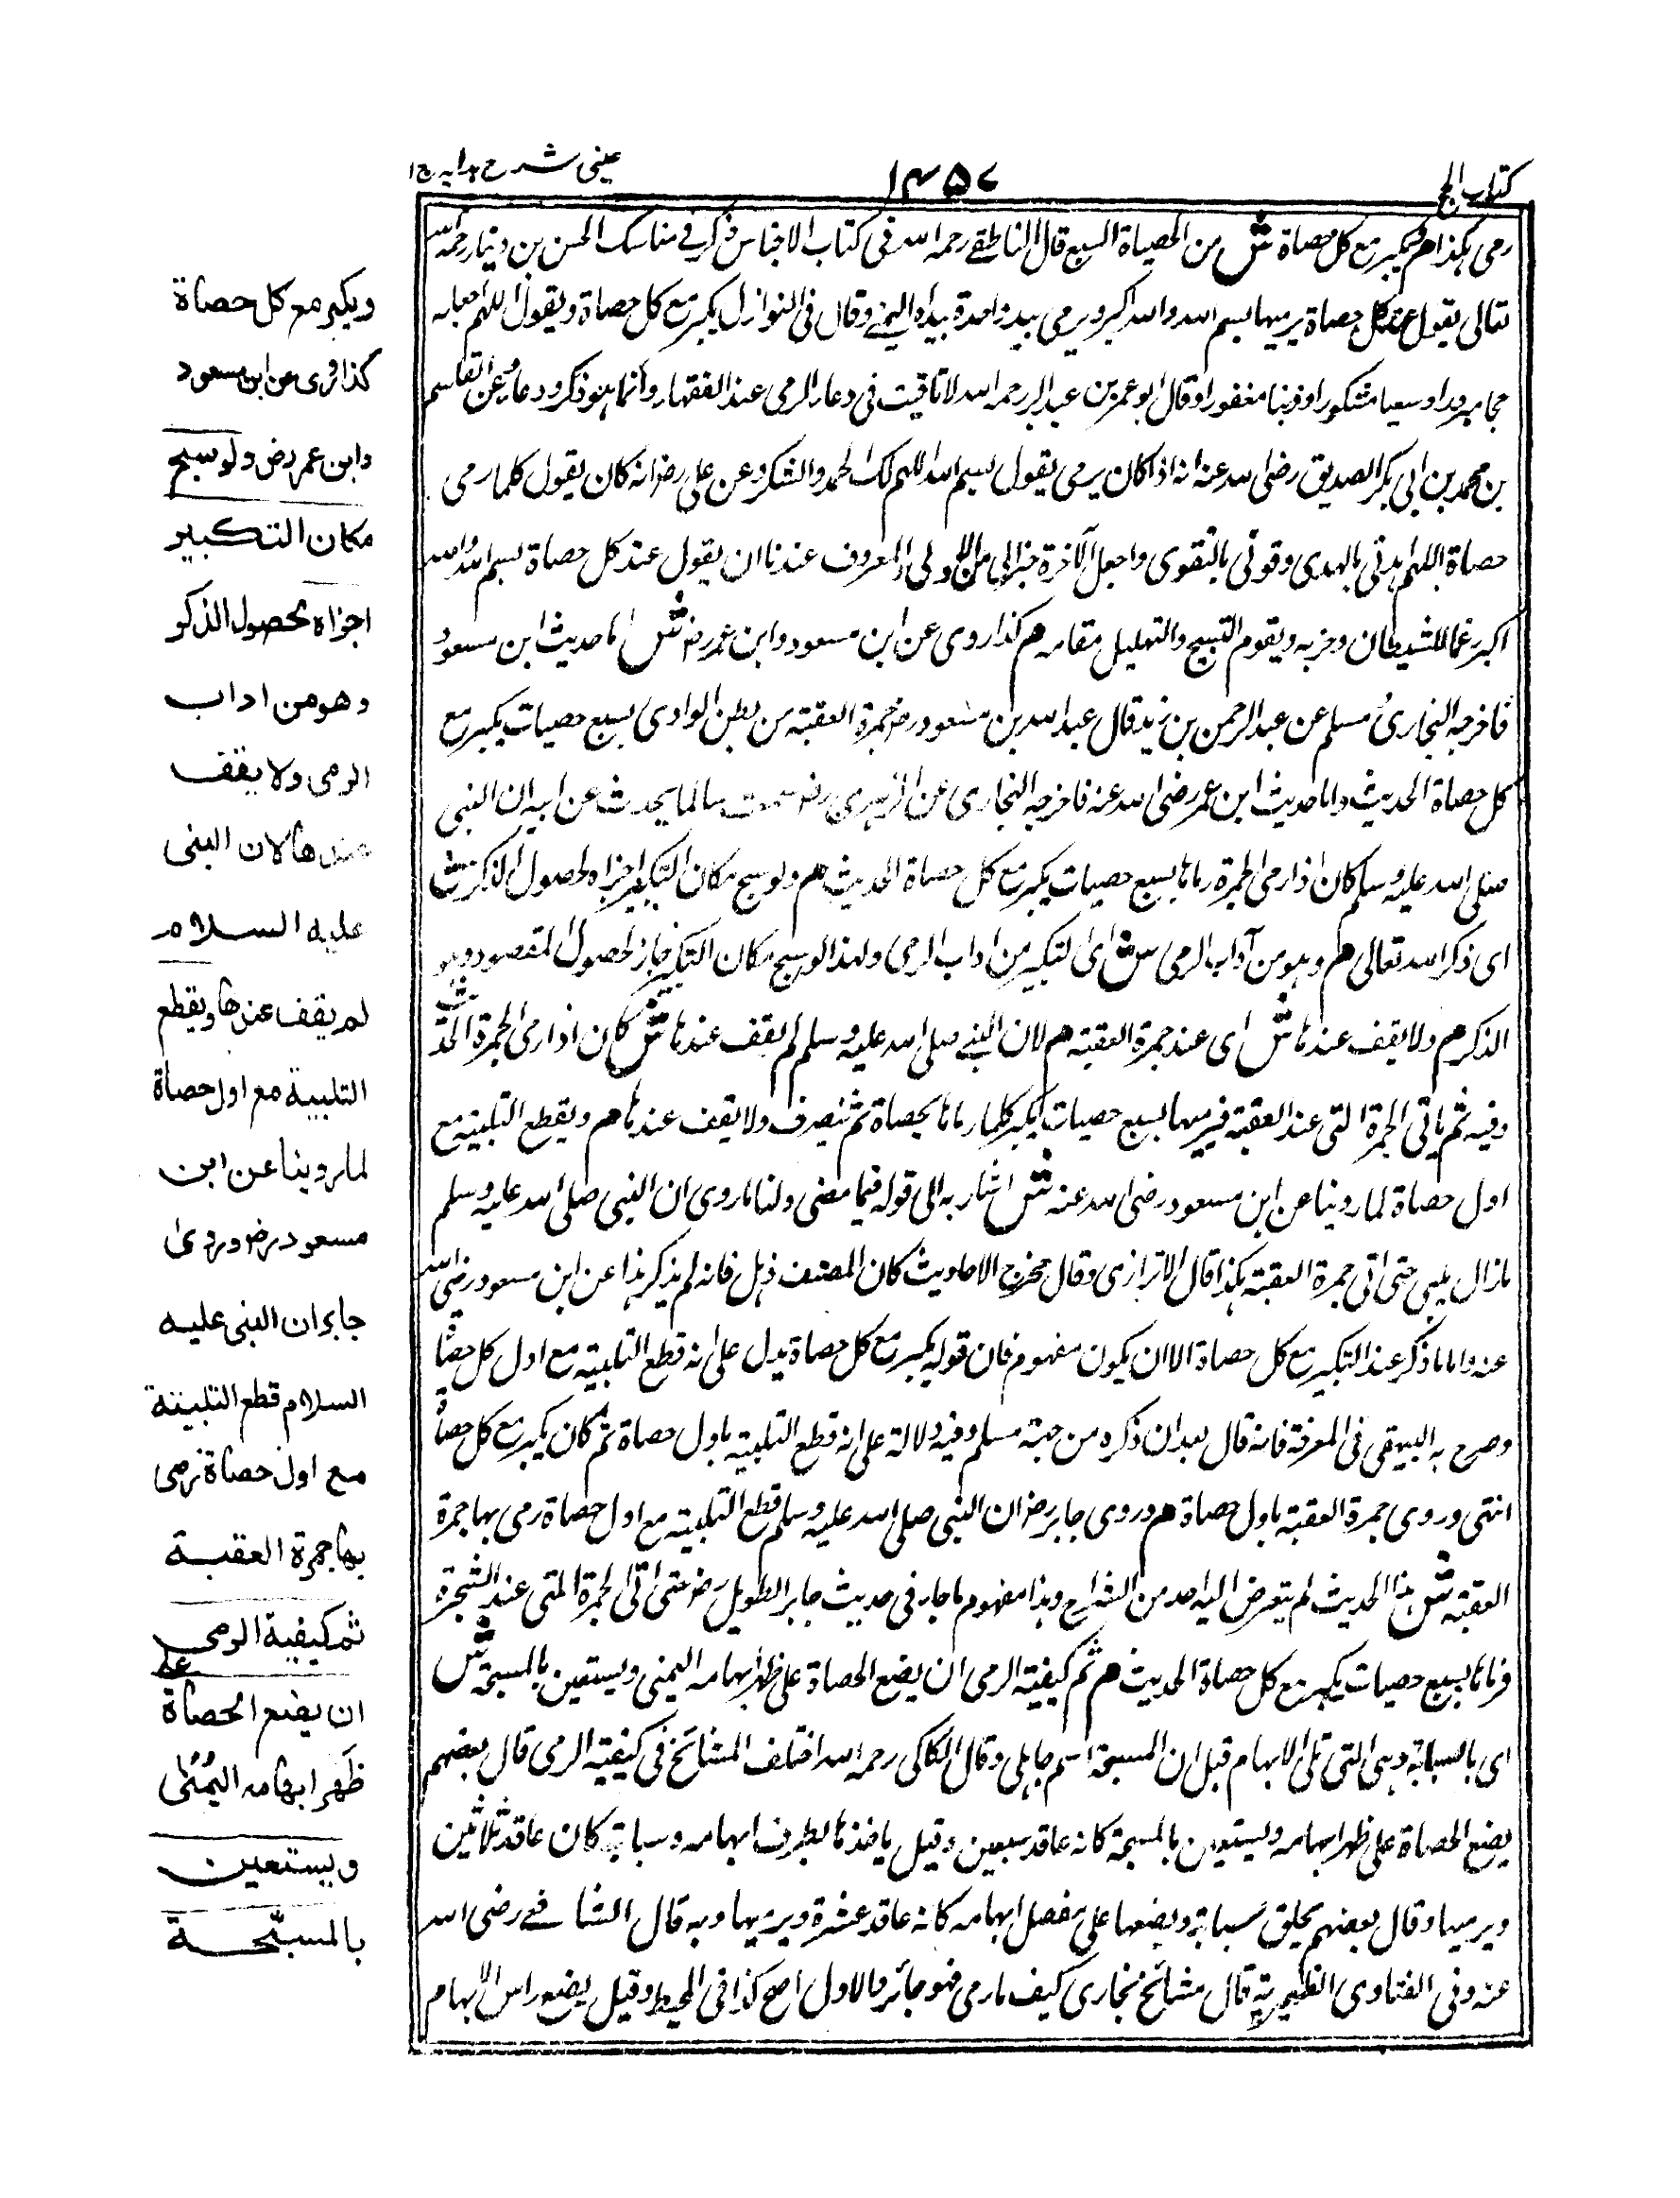 كتاب الحج
١٤٥٧
عينى شرح هدايه ج١
رمى هكذا هم ويكبر مع كل حصاة ش من الحصياة السبع قال الناطقے رحمه الله فى كتاب الاجناس ذكر فے مناسك الحسن بن دينار رحمه الله
تعالى يقول عند كل حصاة يرميها بسم الله والله اكبر ويرمى بيد واحدة بيده اليمنے وقال فى النوازل يكبر مع كل حصاة ويقول اللهم اجعله
حجا مبرورا وسعيا مشكورا وذنبا مغفورا وقال ابو عمر بن عبد البر رحمه الله لا تاقيت فى دعاء الرمى عند الفقهاء وانما هو ذكر ودعاء وعن القاسم
بن محمد بن ابى بكر الصديق رضى الله عنه انه اذا كان يرمى يقول بسم الله اللهم لك الحمد والشكر وعن على رض انه كان يقول كلما رمى
حصاة اللهم اهدنى بالهدى وقونى بالتقوى واجعل الآخرة خيرا لى من الاولى والمعروف عندنا ان يقول عند كل حصاة بسم الله والله
اكبر رغما للشيطان وحزبه ويقوم التسبيح والتهليل مقامه هم كذا روى عن ابن مسعود وابن عمر رض ش اما حديث ابن مسعود
فاخرجه البخارى ومسلم عن عبد الرحمن بن زيد قال عبد الله بن مسعود رض جمرة العقبة من بطن الوادى بسبع حصيات يكبر مع
كل حصاة الحديث واما حديث ابن عمر رضى الله عنه فاخرجه البخارى عن الزهرى رض سمعت سالما يحدث عن ابيه ان النبى
صلى الله عليه وسلم كان اذا رمى الجمرة رماها بسبع حصيات يكبر مع كل حصاة الحديث هم ولو سبح مكان التكبير اجزاه لحصول الذكر ش
اى ذكر الله تعالى هم وهو من آداب الرمى ش اى التكبير من اداب الرمى ولهذا لو سبح مكان التكبير جاز لحصول المقصود وهو
الذكر هم ولا يقف عندها ش اى عند جمرة العقبة هم لان النبے صلى الله عليه وسلم لم يقف عندها ش كان اذا رمى الجمرة الحديث
وفيه ثم ياتى الجمرة التى عند العقبة فيرميها بسبع حصيات يكبر كلما رماها بحصاة ثم ينصرف ولا يقف عندها هم ويقطع التلبية مع
اول حصاة لما روينا عن ابن مسعود رضى الله عنه ش اشار به الى قوله فيما مضى ولنا ما روى ان النبى صلى الله عليه وسلم
مازال يلبى حتى اتى جمرة العقبة هكذا قال الاترازى وقال مخرج الاحاديث كان المصنف ذهل فانه لم يذكر هذا عن ابن مسعود رضى الله
عنه وانما ذكر عند التكبير مع كل حصاة الا ان يكون مفهوم فان قوله يكبر مع كل حصاة يدل على انه قطع التلبية مع اول كل حصاة
وصرح به البيهقى فى المعرفة فانه قال بعد ان ذكره من جهة مسلم وفيه دلالة على انه قطع التلبية باول حصاة ثم كان يكبر مع كل حصاة
انتهى وروى جمرة العقبة باول حصاة هم وروى جابر رض ان النبى صلى الله عليه وسلم قطع التلبية مع اول حصاة رمى بها جمرة
العقبة ش هذا الحديث لم يتعرض اليه احد من الشراح وهذا مفهوم ما جاء فى حديث جابر الطويل رض حتى اتى الجمرة التى عند الشجرة
فرماها بسبع حصيات يكبر مع كل حصاة الحديث هم ثم كيفية الرمى ان يضع الحصاة على ظهر ابهامه اليمنى ويستعين بالمسبحة ش
اى بالسبابة وهى التى تلى الابهام قبل ان المسبحة اسم جاهلى وقال الكاكى رحمه الله اختلف المشائخ فى كيفية الرمى قال بعضهم
يضع الحصاة على ظهر ابهامه ويستعين بالمسبحة كانه عاقد سبعين وقيل ياخذها بطرف ابهامه وسبابته كان عاقد ثلاثين
ويرميها وقال بعضهم يحلق سبابته ويضعها على مفصل ابهامه كانه عاقد عشرة ويرميها وبه قال الشافعے رضى الله
عنه وفى الفتاوى الظهيرية قال مشائخ بخارى كيف ما رمى فهو جائز والاول اصح كذا فى المحيط وقيل يضع راس الابهام
ويكبر مع كل حصاة
كذا روى عن ابن مسعود
وابن عمر رض ولو سبح
مكان التكبير
اجزاه لحصول الذكر
وهو من اداب
الرمى ولا يقف
عندها لان النبى
عليه السلام
لم يقف عندها ويقطع
التلبية مع اول حصاة
لما روينا عن ابن
مسعود رض وروى
جابر ان النبى عليه
السلام قطع التلبية
مع اول حصاة رمى
بها جمرة العقبة
ثم كيفية الرمى
ان يضع الحصاة على
ظهر ابهامه اليمنى
ويستعين
بالمسبّحة